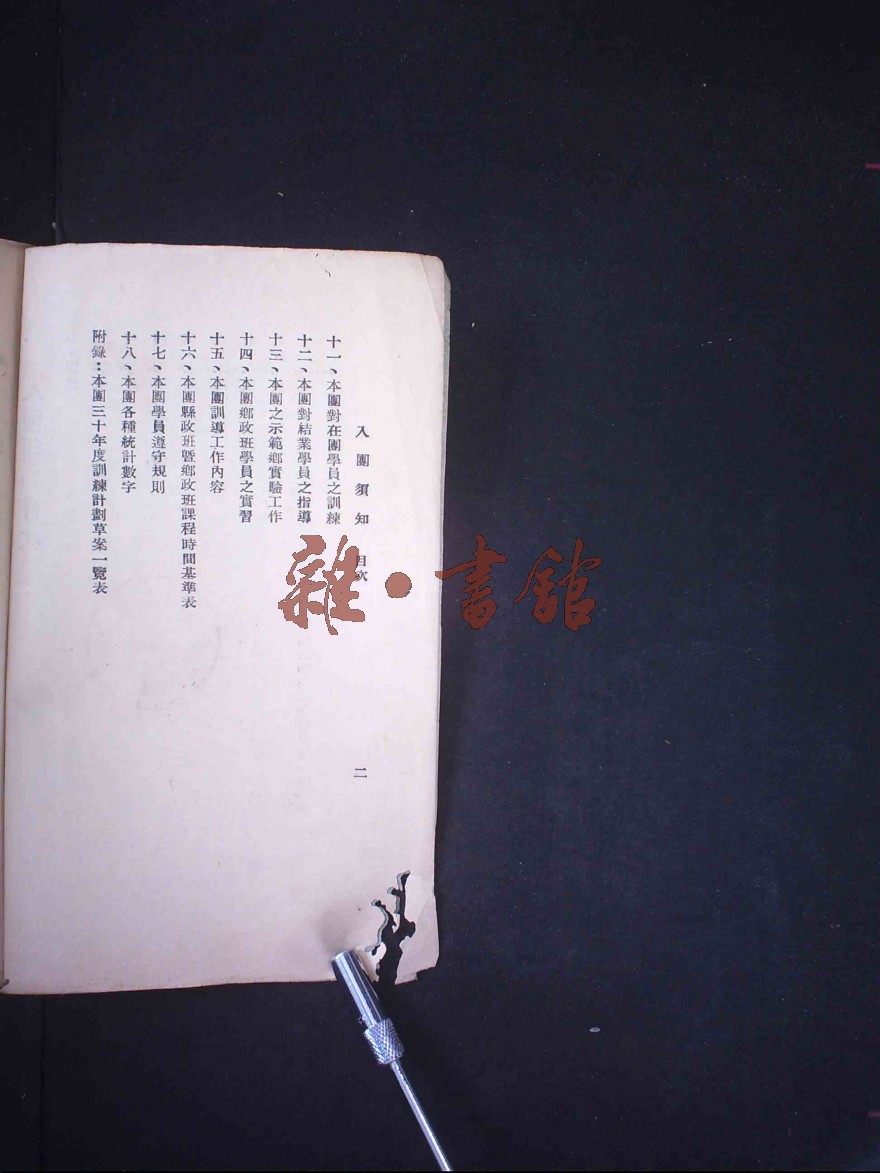 入團須知 目次 二
十一、本團對在團學員之訓練
十二、本團對結業學員之指導
十三、本團之示範鄉實驗工作
十四、本團鄉政班學員之實習
十五、本團訓導工作內容
十六、本團縣政班暨鄉政班課程時間基準表
十七、本團學員遵守規則
十八、本團各種統計數字
附錄：本團三十年度訓練計劃草案一覽表
雜·書館